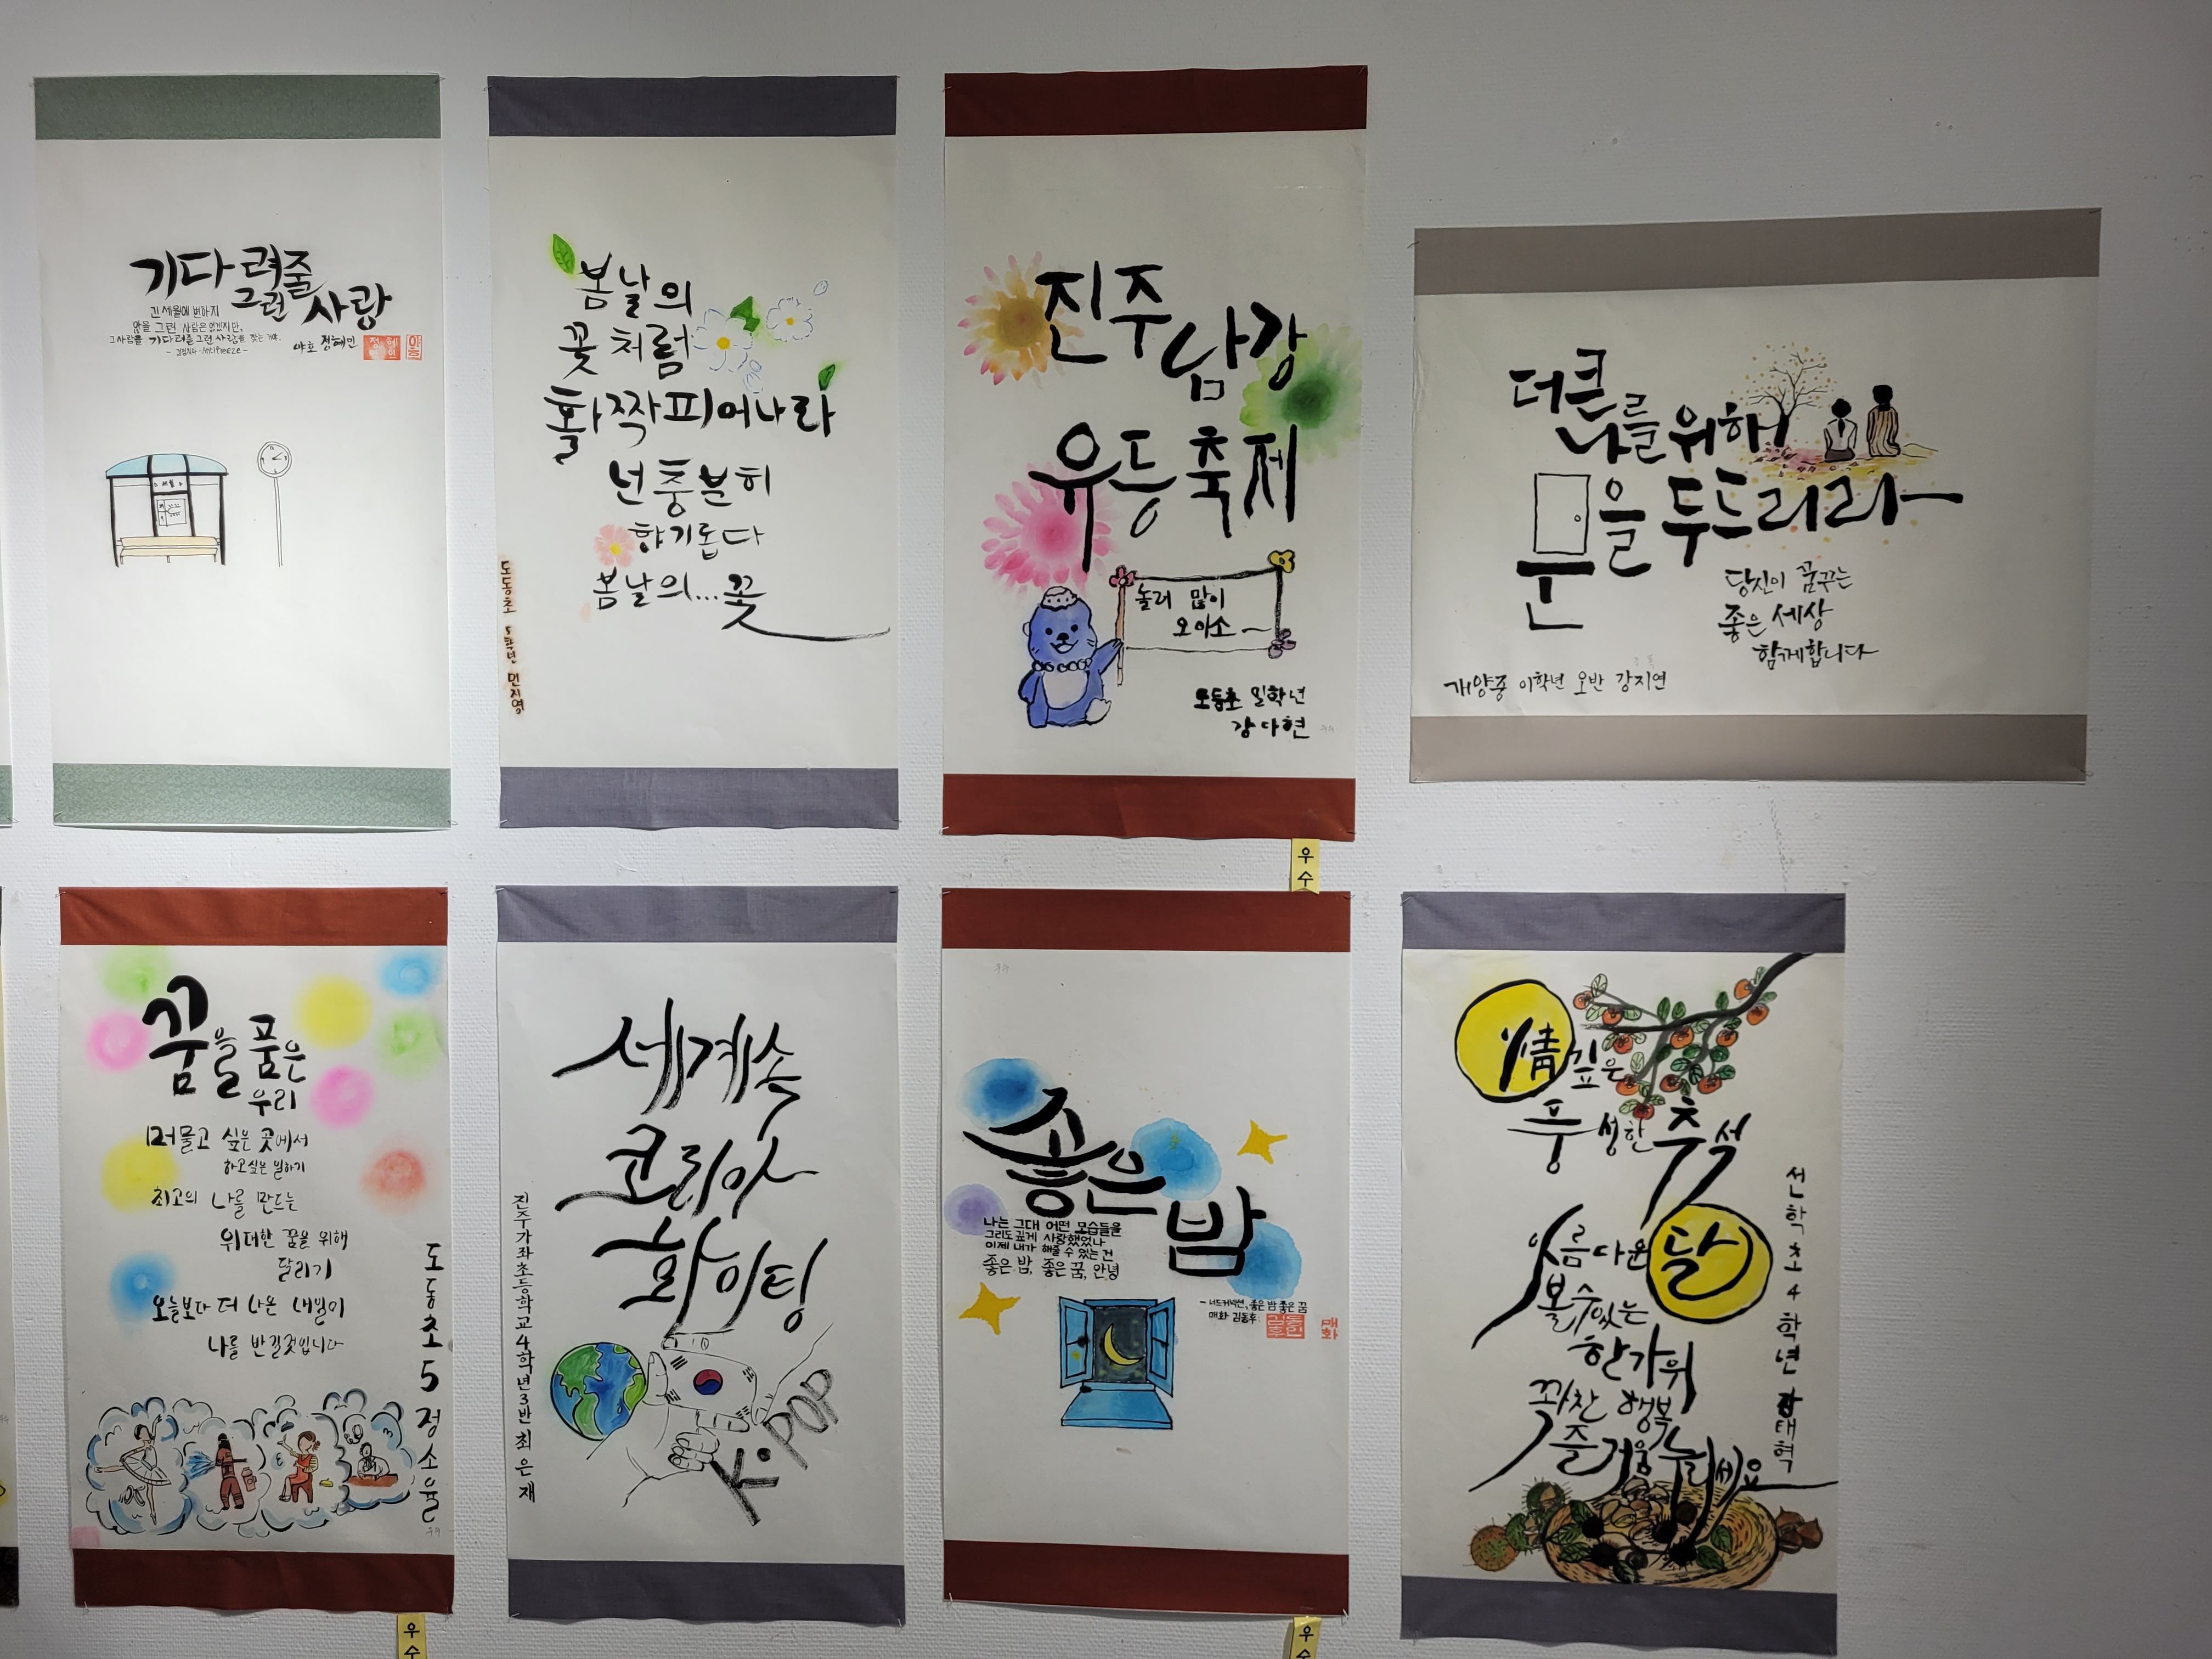 기다려줄
그런 사랑
긴 세월에 변하지
않을 그런 사람은 없겠지만,
그 사람을 기다려줄 그런 사랑을 찾는 거야.
- 검정치마 - Antifreeze -
야호 정혜민
봄날의
꽃처럼
활짝피어나라
넌 충분히
향기롭다
봄날의...꽃
도동초 5학년 민지영
진주남강
유등축제
놀러 많이
오이소~
도동초 일학년
강다현
우수
더 큰
나를 위해
문을 두드리라
당신이 꿈꾸는
좋은 세상
함께합니다
개양중 이학년 오반 강지연
꿈을 품은
우리
머물고 싶은 곳에서
하고싶은 일하기
최고의 나를 만드는
위대한 꿈을 위해
달리기
오늘보다 더 나은 내일이
나를 반길것입니다
도동초 5 정소율
우수
세계속
코리아
화이팅
K·POP
진주가좌초등학교 4학년 3반 최은재
좋은
밤
나는 그대 어떤 모습들을
그리도 깊게 사랑했었나
이제 내가 해줄 수 있는 건
좋은 밤, 좋은 꿈, 안녕
- 너드커넥션, 좋은 밤 좋은 꿈
매화 김동후
매화
우수
情 깊은
풍성한 추석
아름다운 달
볼 수 있는
한가위
꽉찬 행복
즐거움 누리세요
선학초 4학년 태혁